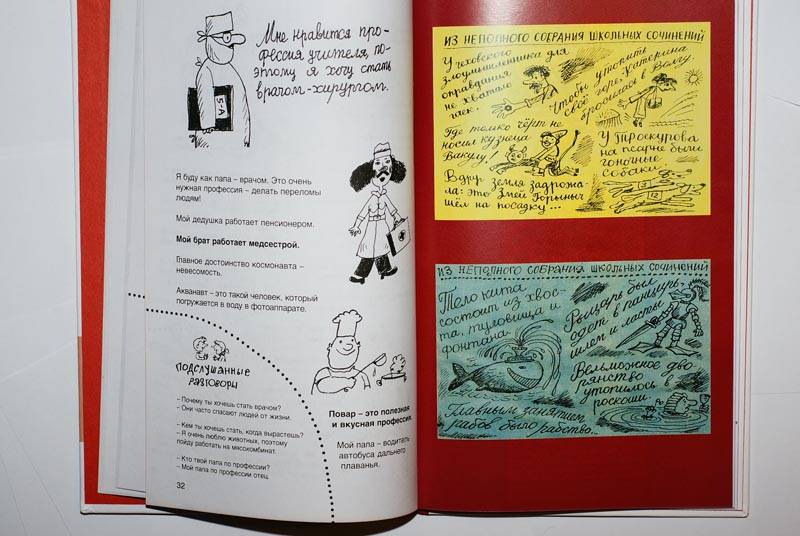 Мне нравится про-
фессия учителя, по-
этому я хочу стать
врачом-хирургом.
5-А
Я буду как папа – врачом. Это очень
нужная профессия – делать переломы
людям!
Мой дедушка работает пенсионером.
Мой брат работает медсестрой.
Главное достоинство космонавта –
невесомость.
Акванавт – это такой человек, который
погружается в воду в фотоаппарате.
ПОДСЛУШАННЫЕ
РАЗГОВОРЫ
– Почему ты хочешь стать врачом?
– Они часто спасают людей от жизни.
– Кем ты хочешь стать, когда вырастешь?
– Я очень люблю животных, поэтому
пойду работать на мясокомбинат.
– Кто твой папа по профессии?
– Мой папа по профессии отец.
Повар – это полезная
и вкусная профессия.
Мой папа – водитель
автобуса дальнего
плаванья.
32
ИЗ НЕПОЛНОГО СОБРАНИЯ ШКОЛЬНЫХ СОЧИНЕНИЙ
У чеховского
злоумышленника для
оправдания
не хватило
гаек.
Чтобы утопить
своё горе, Катерина
бросилась в Волгу.
Где только чёрт не
носил кузнеца
Вакулу!
У Троекурова
на псарне были
гоночные
собаки.
Вдруг земля задрожа-
ла: это Змей Горыныч
шёл на посадку...
12
ИЗ НЕПОЛНОГО СОБРАНИЯ ШКОЛЬНЫХ СОЧИНЕНИЙ
Тело кита
состоит из хвос-
та, туловища и
фонтана.
Рыцарь был
одет в панцирь,
шлем и ласты.
Вельможное дво-
рянство
утопилось в
роскоши.
Главным занятием
рабов было рабство.